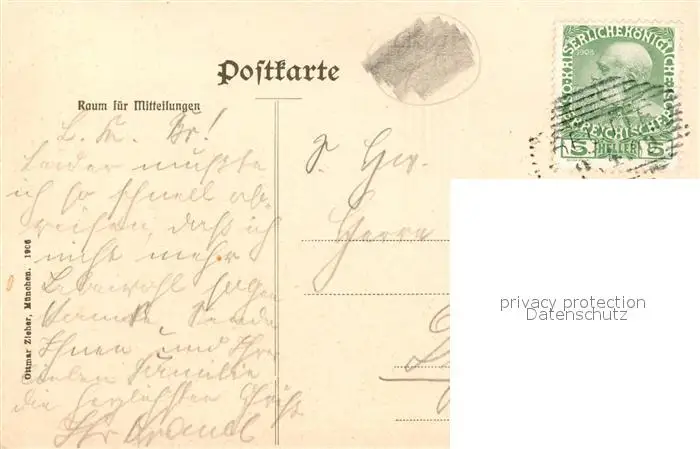 Postkarte
Raum für Mitteilungen
K.K. OESTERREICHISCHE POST
KAISERLICHE KÖNIGLICHE
1908
5 HELLER 5
L. Fr.
Leider mußte
ich so schnell ab-
reisen, daß ich
nicht mehr
Lebewohl sagen
konnte. Sende
Ihnen und Ihrer
lieben Familie
die herzlichsten Grüße
Ihr
Herrn
Ottmar Zieher, München. 1906
privacy protection
Datenschutz